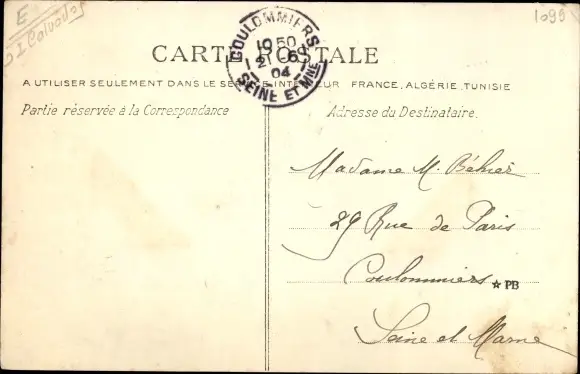 E
1095
COULOMMIERS
10 50
21 -6
04
SEINE ET MNE
CARTE POSTALE
A UTILISER SEULEMENT DANS LE SERVICE INTÉRIEUR FRANCE, ALGÉRIE, TUNISIE
Partie réservée à la Correspondance
Adresse du Destinataire.
Madame M. Béhier
29 Rue de Paris
Coulommiers
★ PB
Seine et Marne